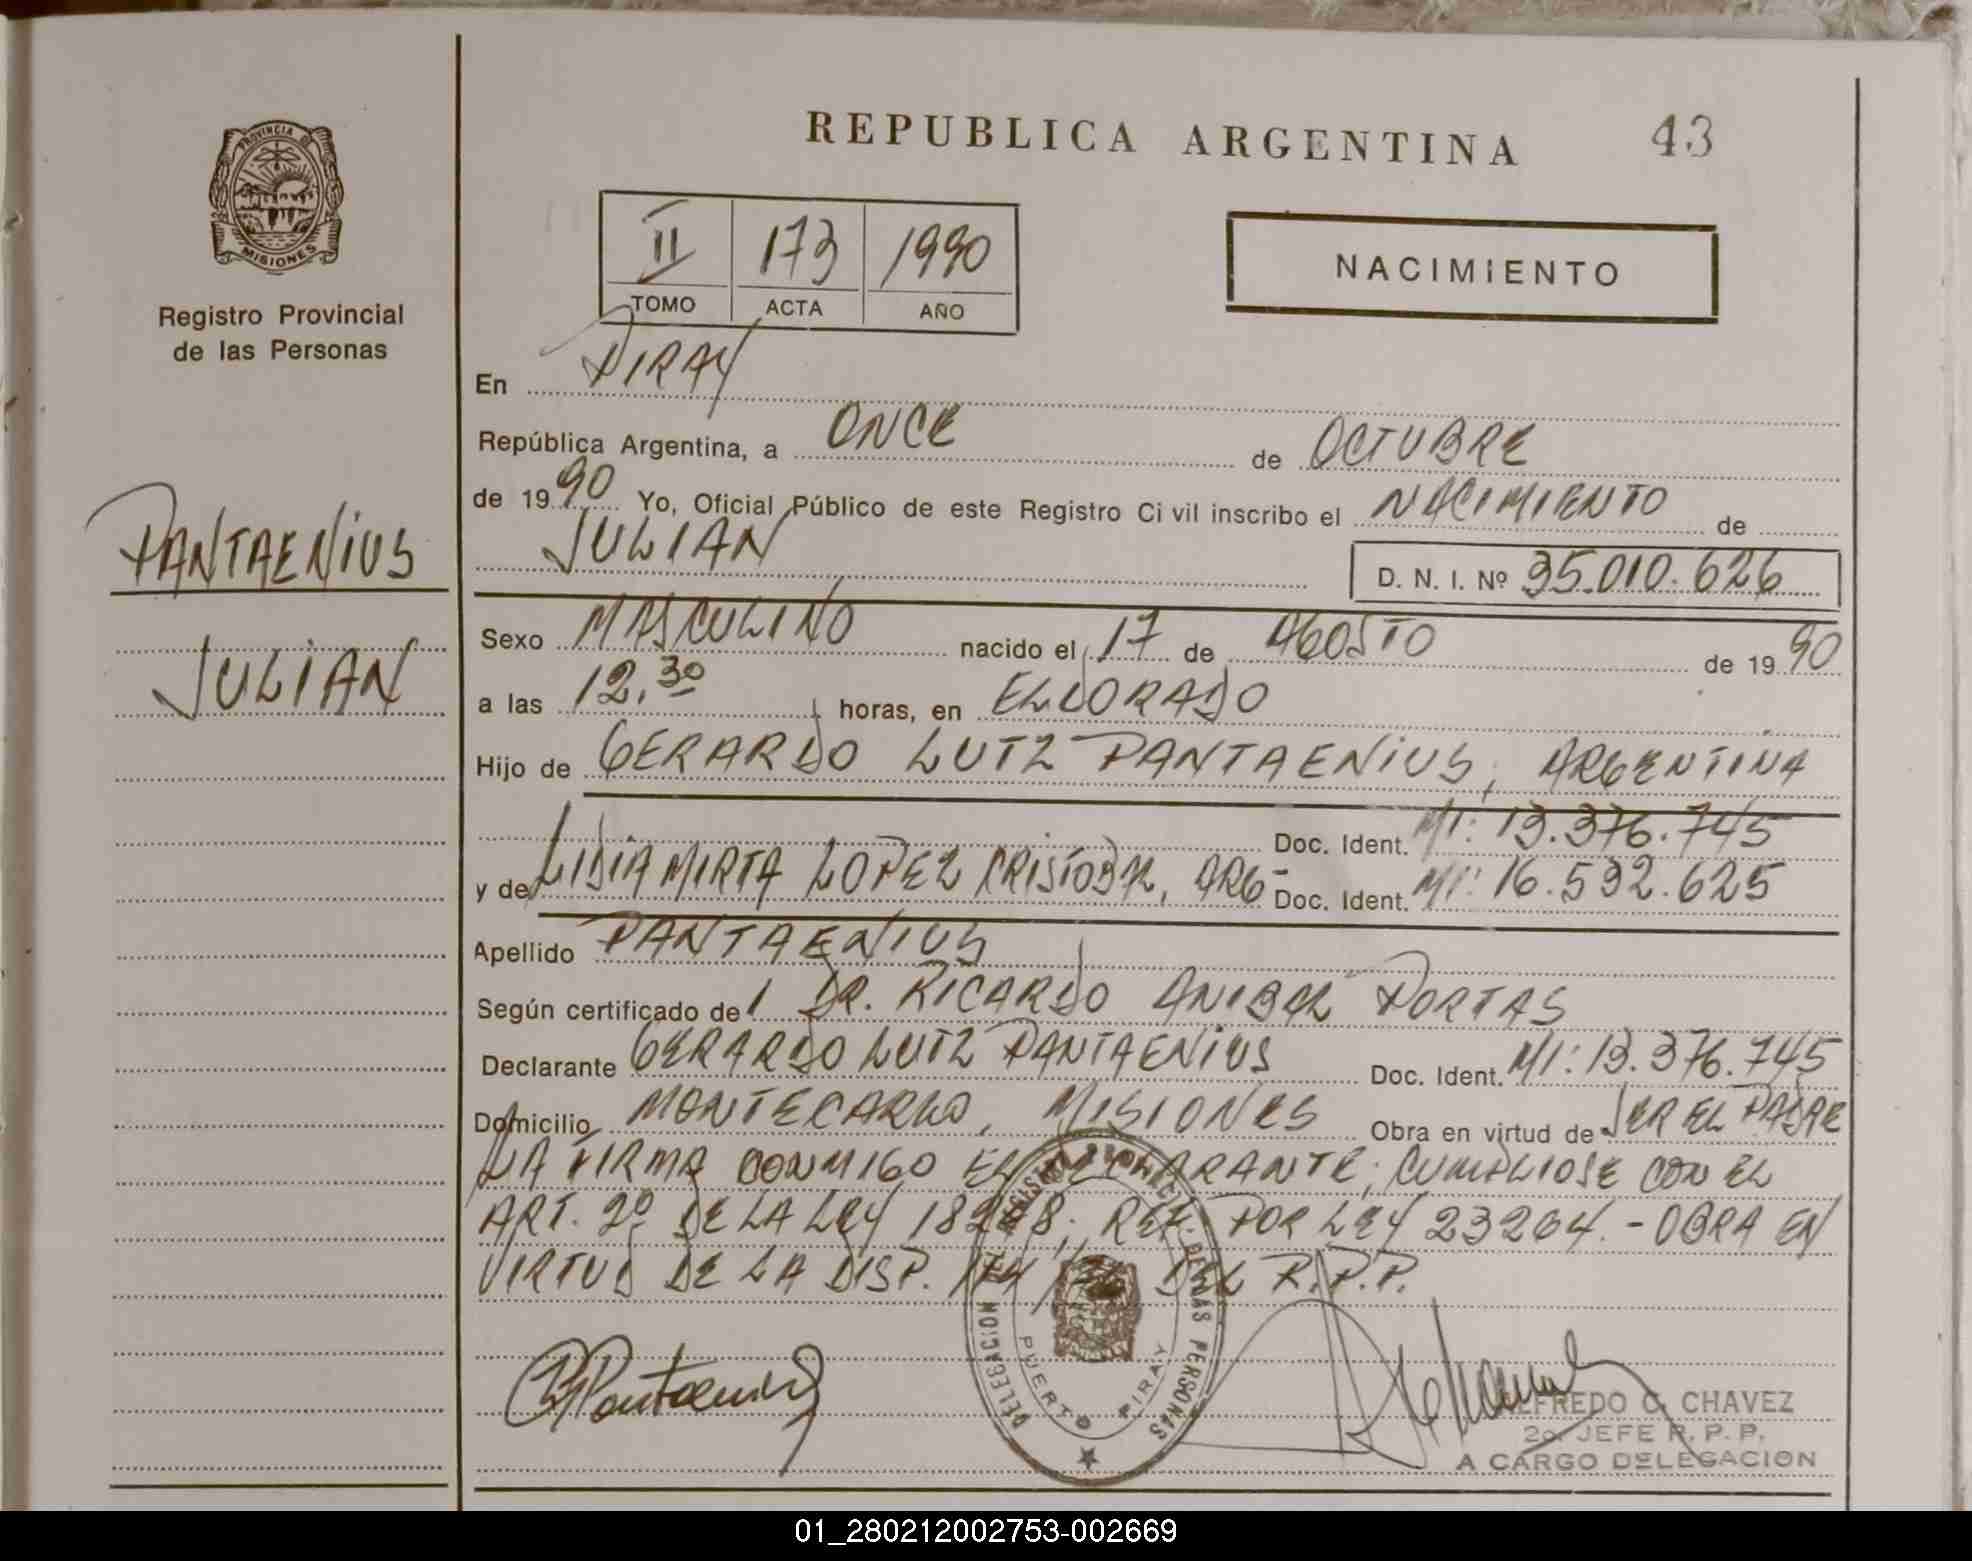 REPUBLICA ARGENTINA 43
PROVINCIA DE
MISIONES
Registro Provincial
de las Personas
II 173 1990
TOMO ACTA AÑO
NACIMIENTO
En PIRAY
República Argentina, a ONCE de OCTUBRE
de 1990 Yo, Oficial Público de este Registro Ci vil inscribo el NACIMIENTO de
JULIAN D. N. I. Nº 35.010.626
PANTAENIUS
JULIAN
Sexo MASCULINO nacido el 17 de AGOSTO de 1990
a las 12,30 horas, en ELDORADO
Hijo de GERARDO LUTZ PANTAENIUS, ARGENTINA
Doc. Ident. MI: 13.376.745
y de LIDIA MIRTA LOPEZ CRISTOBAL, ARG- Doc. Ident. MI: 16.592.625
Apellido PANTAENIUS
Según certificado de DR. RICARDO ANIBAL PORTAS
Declarante GERARDO LUTZ PANTAENIUS Doc. Ident. MI: 13.376.745
Domicilio MONTECARLO, MISIONES Obra en virtud de SER EL PADRE
LA FIRMA CONMIGO EL DECLARANTE; CUMPLIOSE CON EL
ART. 2º DE LA LEY 18248; REF. POR LEY 23264.- OBRA EN
VIRTUD DE LA DISP. DEL R.P.P.
DELEGACION DEL REGISTRO PROVINCIAL DE LAS PERSONAS
PUERTO PIRAY
ALFREDO C. CHAVEZ
2o. JEFE R. P. P.
A CARGO DELEGACION
01_280212002753-002669